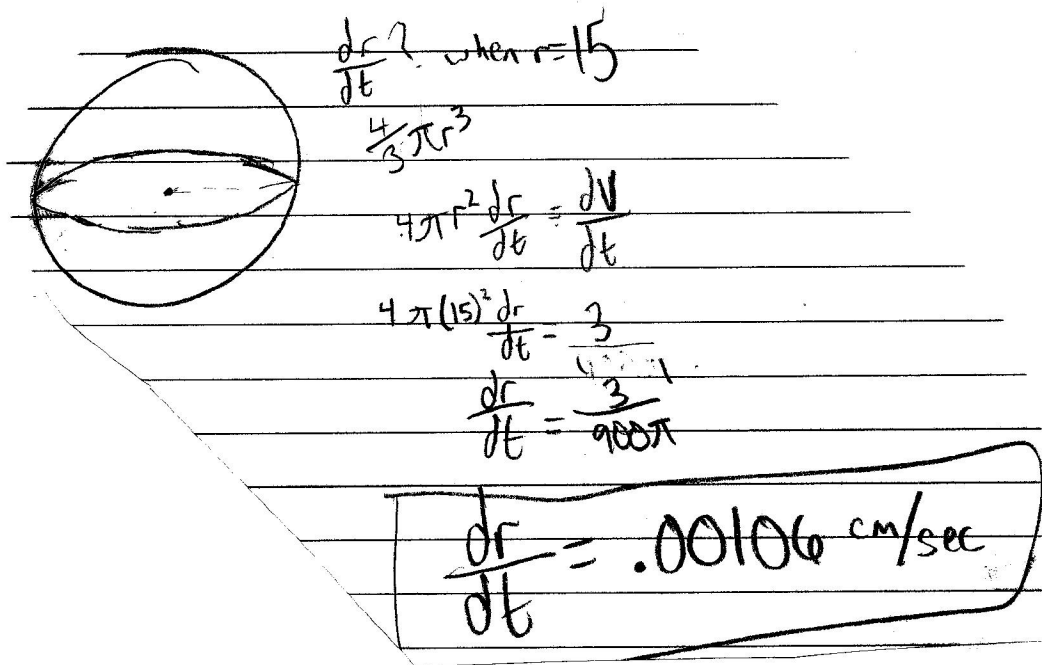 dr/dt? when r=15
4/3 πr³
4πr² dr/dt = dV/dt
4π(15)² dr/dt = 3
dr/dt = 3/900π
dr/dt = .00106 cm/sec